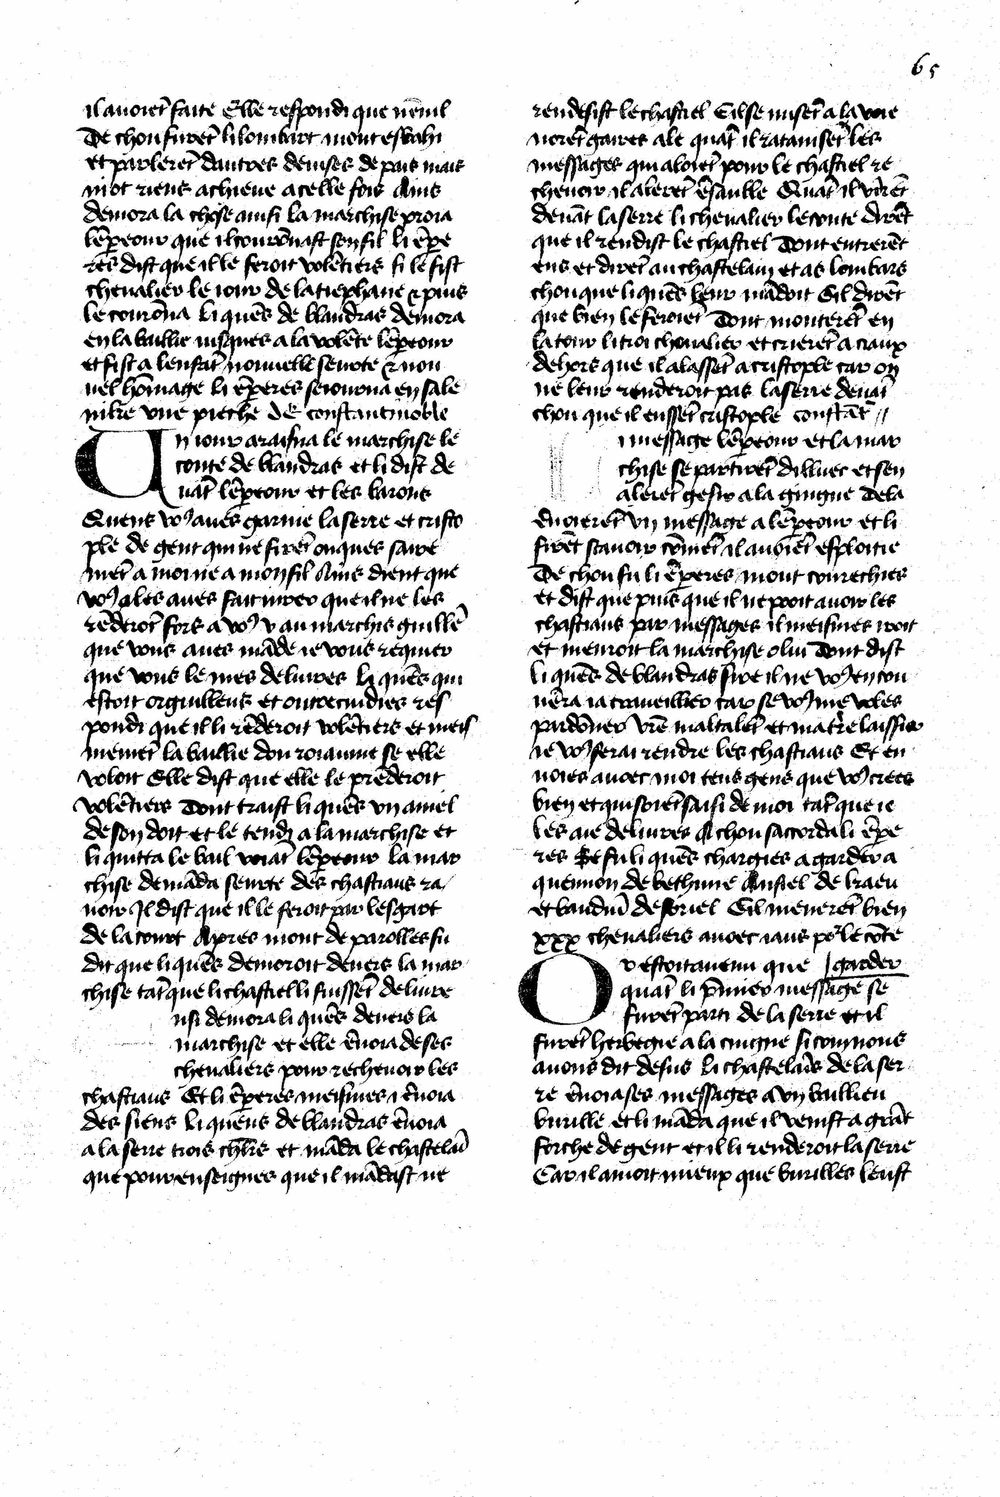 65
il auoiet̄ faite Elle respondi que nēnil
De chou furēt li lombart mont esbahi
et parlerēt dautres deuises de pais mais
not riens achieue a celle fois Ains
demora la chose ainsi la marchise proia
lēpeour que il courōnast son fil li ēpe
reres dist que il le feroit volētiers si le fist
cheualier le iour de la tiephane & puis
le courōna li quēs de blandras demora
en la baillie iusques a la volēte lēpeour
et fist a lenfāt nouuelle seurte & nou
uel hōmage li ēperes seiourna en sale
nike vne pieche de constantinoble
Un iour araisna le marchise le
conte de blandras et li dist de
uāt lēpeour et les barons
Quens vo9 aues garnie la serre et cristo
ple de gent qui ne firēt onques saire
mēt a moi ne a mon fil Ains dient que
vo9 a les aues fait iurer que il ne les
rēderoīt fors a vo9 v au marchis guillē
que vous aues māde ie vous requier
que vous le mes deliures li quēs qui
estoit orguilleus et outrecuidies res
pondi que il li rēderoit volētiers et meis
memēt la baillie dou roiaume se elle
voloit Elle dist que elle le prēderoit
volētiers Dont traist li quēs vn aniel
de son doit et le tendi a la marchise et
li quitta le bail voiāt lēpeour la mar
chise demāda seurte des chastiaus ra
uoir Il dist que il le feroit par lesgart
de la court Apres mout de parolles fu
dit que li quēs demoroit deuers la mar
chise tāt que li chastiel li fuissēt deliure
nsi demora li quēs deuers la
marchise et elle ēuoia de ses
cheualiers pour recheuoir les
chastiaus Et li ēperes meismes i ēuoia
des siens li quens de blandras ēuoia
a la serre trois chlrs et māda le chastelaī
que pour enseignes que il mādast ne
rendesist le chastiel Cil se misēt a la voie
norēt gaires ale quāt il rataīsēt les
messages qui aloiēt pour le chastiel re
cheuoir il alerēt ēsanlle Quāt il vīrēt
deuāt la serre li cheualier le conte dirēt
que il rendist le chastiel Dont entrerēt
ens et dirēt au chastelain et as lombars
chou que li quēs leur mādoit Cil dirēt
que bien le feroiēt Dont monterēt en
la tour li troi cheualier et crierēt a ciaux
dehors que il alassēt a cristople car on
ne leur renderoit pas la serre deuāt
chou que il eussēt cristople constāt
i message lēpeour et la mar
chise se partirēt dilluec et sen
alerēt gesir a la gingne De la
ēuoierēt vn message a lēpeour et li
firēt scauoir cōmēt il auoiēt esploitie
De chou fu li ēperes mout courechies
et dist que puis que il ne pooit auoir les
chastiaus par messages il meismes iroit
et menroit la marchise o lui Dont dist
li quēs de blandras sire il ne vo9 en cou
uēra ia traueillier car se vo9 me voles
pardōner vr̄e maltalēt et mat̄re laissier
ie vo9 ferai rendre les chastiaus Et en
uoies auoec moi teus gens que vo9 crees
bien et qui soiēt saisi de moi tāt que ie
les aie deliures A chou sacorda li ēpe
res Se fu li quēs chargies a garder a
quennon de bethune Ansiel de kaeu
et bauduī de soriel Cil menerēt bien
xxx cheualiers auoec iaus por le cōte
Or estoit auenu que | garder
quāt li pmier message se
furēt parti de la serre et il
furēt herbegie a la gingne si com nous
auons dit desus li chastelaīs de la ser
re ēuoia ses messages a vn baillieu
burille et li māda que il venist a grāt
forche de gent et il li renderoit la serre
Car il amoit mieux que burilles leust